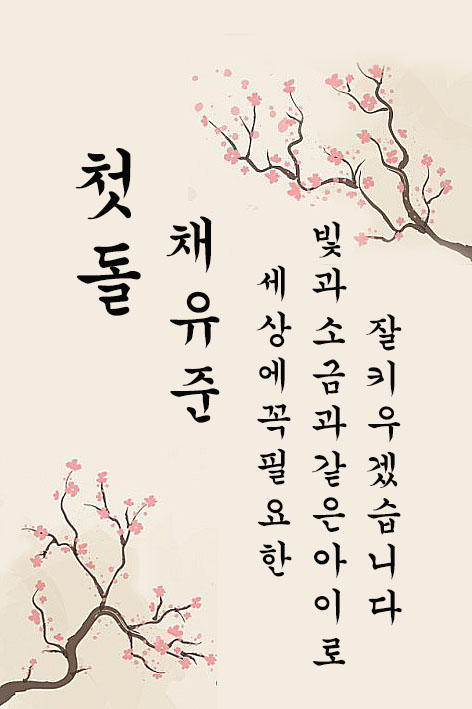 첫돌
채유준
세상에꼭필요한
빛과소금과같은아이로
잘키우겠습니다